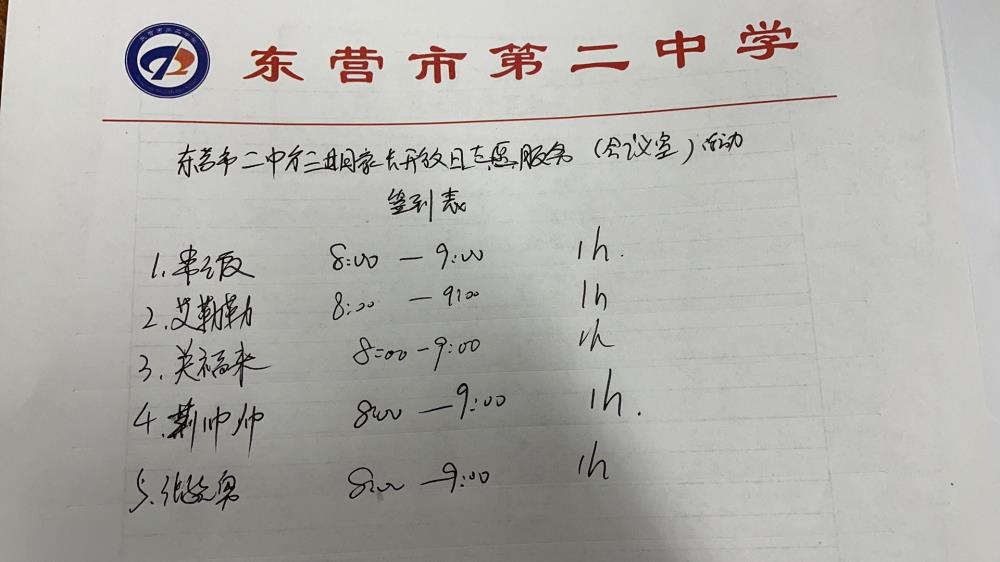 东营市第二中学
东营市二中第三进回家长开放日志愿服务（会议室）活动
签到表
1. 8:00 — 9:00 1h.
2. 艾勒勒 8:00 — 9:00 1h
3. 关福来 8:00 — 9:00 1h
4. 荆帅帅 8:00 — 9:00 1h.
5. 张 8:00 — 9:00 1h